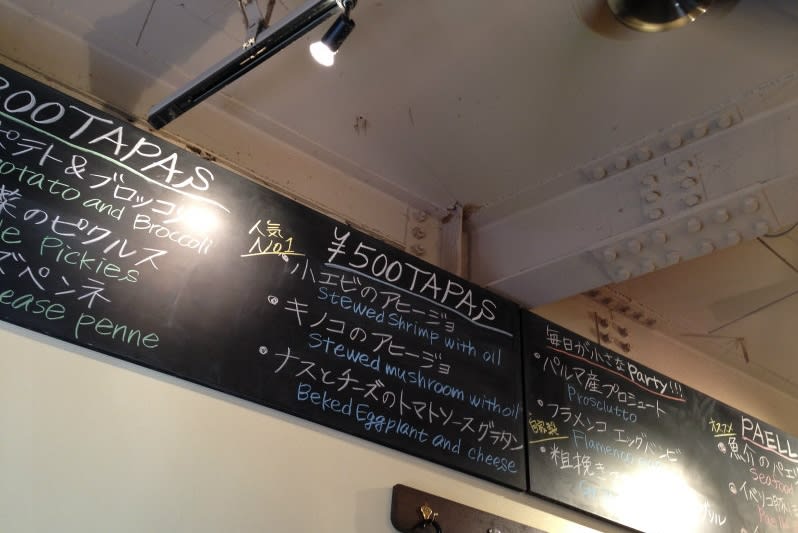 300 TAPAS
ポテト&ブロッコリ
Potato and Broccoli
菜のピクルス
le Pickies
ズペンネ
ease penne
人気
No1
¥500 TAPAS
・小エビのアヒージョ
Stewed Shrimp with oil
・キノコのアヒージョ
Stewed mushroom with oil
・ナスとチーズのトマトソースグラタン
Beked Eggplant and cheese
毎日が小さなParty!!!
・パルマ産プロシュート
Prosciutto
・フラメンコ エッグ
自家製
Flamenco
・粗挽き
オススメ
PAELL
・魚介のパエ
seafood
・イベリコ豚